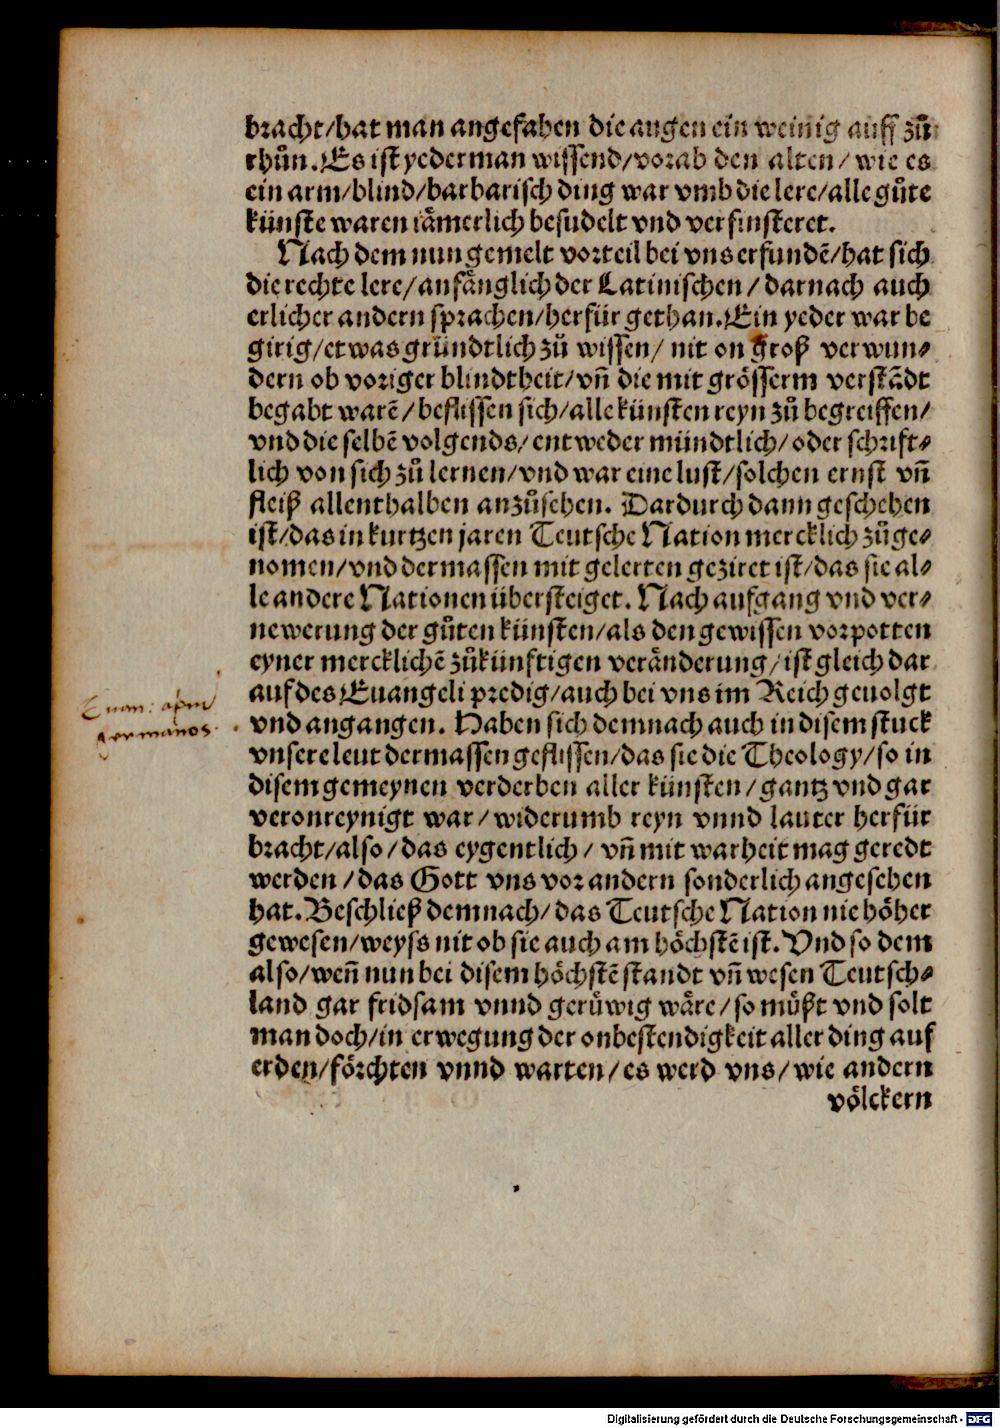 bracht/hat man angefahen die augen ein weinig auff zů
thůn. Es ist yederman wissend/vorab den alten/ wie es
ein arm/blind/barbarisch ding war vmb die lere/alle gůte
künste waren iämerlich besudelt vnd verfinsteret.
Nach dem nun gemelt vorteil bei vns erfundẽ/hat sich
die rechte lere/anfänglich der Latinischen/ darnach auch
etlicher andern sprachen/herfür gethan. Ein yeder war be
girig/etwas gründtlich zů wissen/ nit on groß verwun⸗
dern ob voriger blindtheit/vñ die mit grösserm verstãdt
begabt warẽ/ beflissen sich/alle künsten reyn zů begreiffen/
vnd die selbẽ volgends/entweder mündtlich/oder schrift⸗
lich von sich zů lernen/vnd war eine lust/solchen ernst vñ
fleiß allenthalben anzůsehen. Dardurch dann geschehen
ist/das in kurtzen jaren Teutsche Nation mercklich zůge⸗
nomen/vnd dermassen mit gelerten geziret ist/das sie al⸗
le andere Nationen übersteiget. Nach aufgang vnd ver⸗
newerung der gůten künsten/als den gewissen vorpotten
eyner mercklichẽ zůkünftigen veränderung/ist gleich dar
auf des Euangeli predig/auch bei vns im Reich geuolgt
vnd angangen. Haben sich demnach auch in disem stuck
vnsere leut dermassen geflissen/das sie die Theology/so in
disem gemeynen verderben aller künsten/gantz vnd gar
veronreynigt war/widerumb reyn vnnd lauter herfür
bracht/also/das eygentlich/ vñ mit warheit mag geredt
werden/das Gott vns vor andern sonderlich angesehen
hat. Beschließ demnach/das Teutsche Nation nie höher
gewesen/weyss nit ob sie auch am höchstẽ ist. Vnd so dem
also/weñ nun bei disem höchstẽ standt vñ wesen Teutsch⸗
land gar fridsam vnnd gerüwig wäre/so müßt vnd solt
man doch/in erwegung der onbestendigkeit aller ding auf
erden/förchten vnnd warten/es werd vns/wie andern
völckern
Euan: apud
germanos.
Digitalisierung gefördert durch die Deutsche Forschungsgemeinschaft - DFG